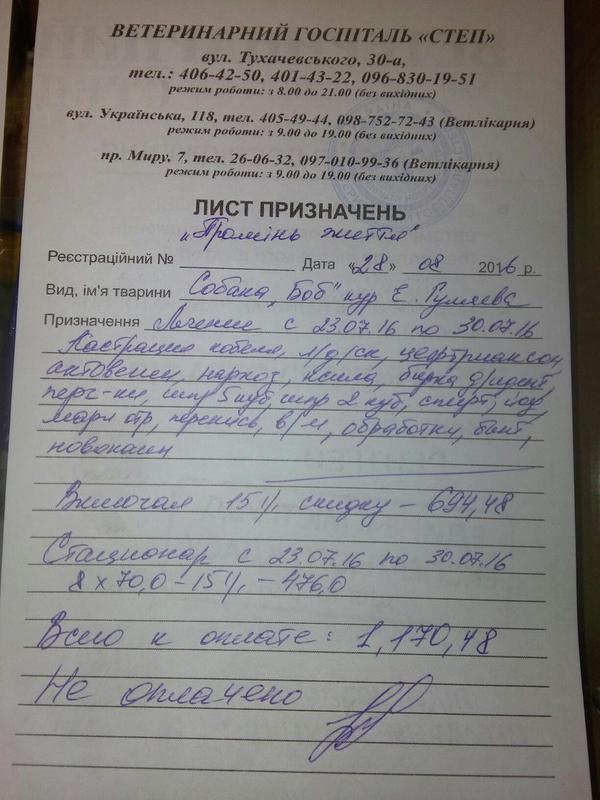 ВЕТЕРИНАРНИЙ ГОСПІТАЛЬ «СТЕП»
вул. Тухачевського, 30-а,
тел.: 406-42-50, 401-43-22, 096-830-19-51
режим роботи: з 8.00 до 21.00 (без вихідних)
вул. Українська, 118, тел. 405-49-44, 098-752-72-43 (Ветлікарня)
режим роботи: з 9.00 до 19.00 (без вихідних)
пр. Миру, 7, тел. 26-06-32, 097-010-99-36 (Ветлікарня)
режим роботи: з 9.00 до 19.00 (без вихідних)
ЛИСТ ПРИЗНАЧЕНЬ
„Промінь життя"
Реєстраційний № Дата «28» 08 2016 р.
Вид, ім'я тварини Собака „Боб" кур Е. Гуляева
Призначення Лечение с 23.07.16 по 30.07.16
Кастрация кобеля, цефтриаксон,
актовегин, наркоз, ксила, бирка д/идент,
перч-ки, шпр 5 куб, шпр 2 куб, спирт, йод,
марл отр, перекись, в/м, обработки, бинт,
новокаин
Включая 15% скидку – 694,48
Стационар с 23.07.16 по 30.07.16
8 х 70,0 – 15% – 476,0
Всего к оплате: 1,170,48
Не оплачено